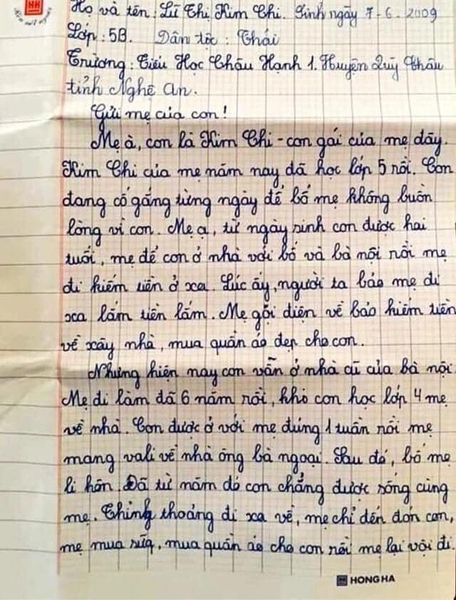 Họ và tên: Lữ Thị Kim Chi. Sinh ngày 7-6-2009
Lớp: 5B. Dân tộc: Thái
Trường: Tiểu Học Châu Hạnh 1. Huyện Quỳ Châu
tỉnh Nghệ An.
Gửi mẹ của con!
Mẹ à, con là Kim Chi - con gái của mẹ đây.
Kim Chi của mẹ năm nay đã học lớp 5 rồi. Con
đang cố gắng từng ngày để bố mẹ không buồn
lòng vì con. Mẹ ạ, từ ngày sinh con được hai
tuổi, mẹ để con ở nhà với bố và bà nội rồi mẹ
đi kiếm tiền ở xa. Lúc ấy, người ta bảo mẹ đi
xa lắm tiền lắm. Mẹ gọi điện về bảo kiếm tiền
về xây nhà, mua quần áo đẹp cho con.
Nhưng hiện nay con vẫn ở nhà cũ của bà nội.
Mẹ đi làm đã 6 năm rồi, khi con học lớp 4 mẹ
về nhà. Con được ở với mẹ đúng 1 tuần rồi mẹ
mang vali về nhà ông bà ngoại. Sau đó, bố mẹ
li hôn. Đã từ năm đó con chẳng được sống cùng
mẹ. Thỉnh thoảng đi xa về, mẹ chỉ đến đón con,
mẹ mua sữa, mua quần áo cho con rồi mẹ lại vội đi.
HONG HA